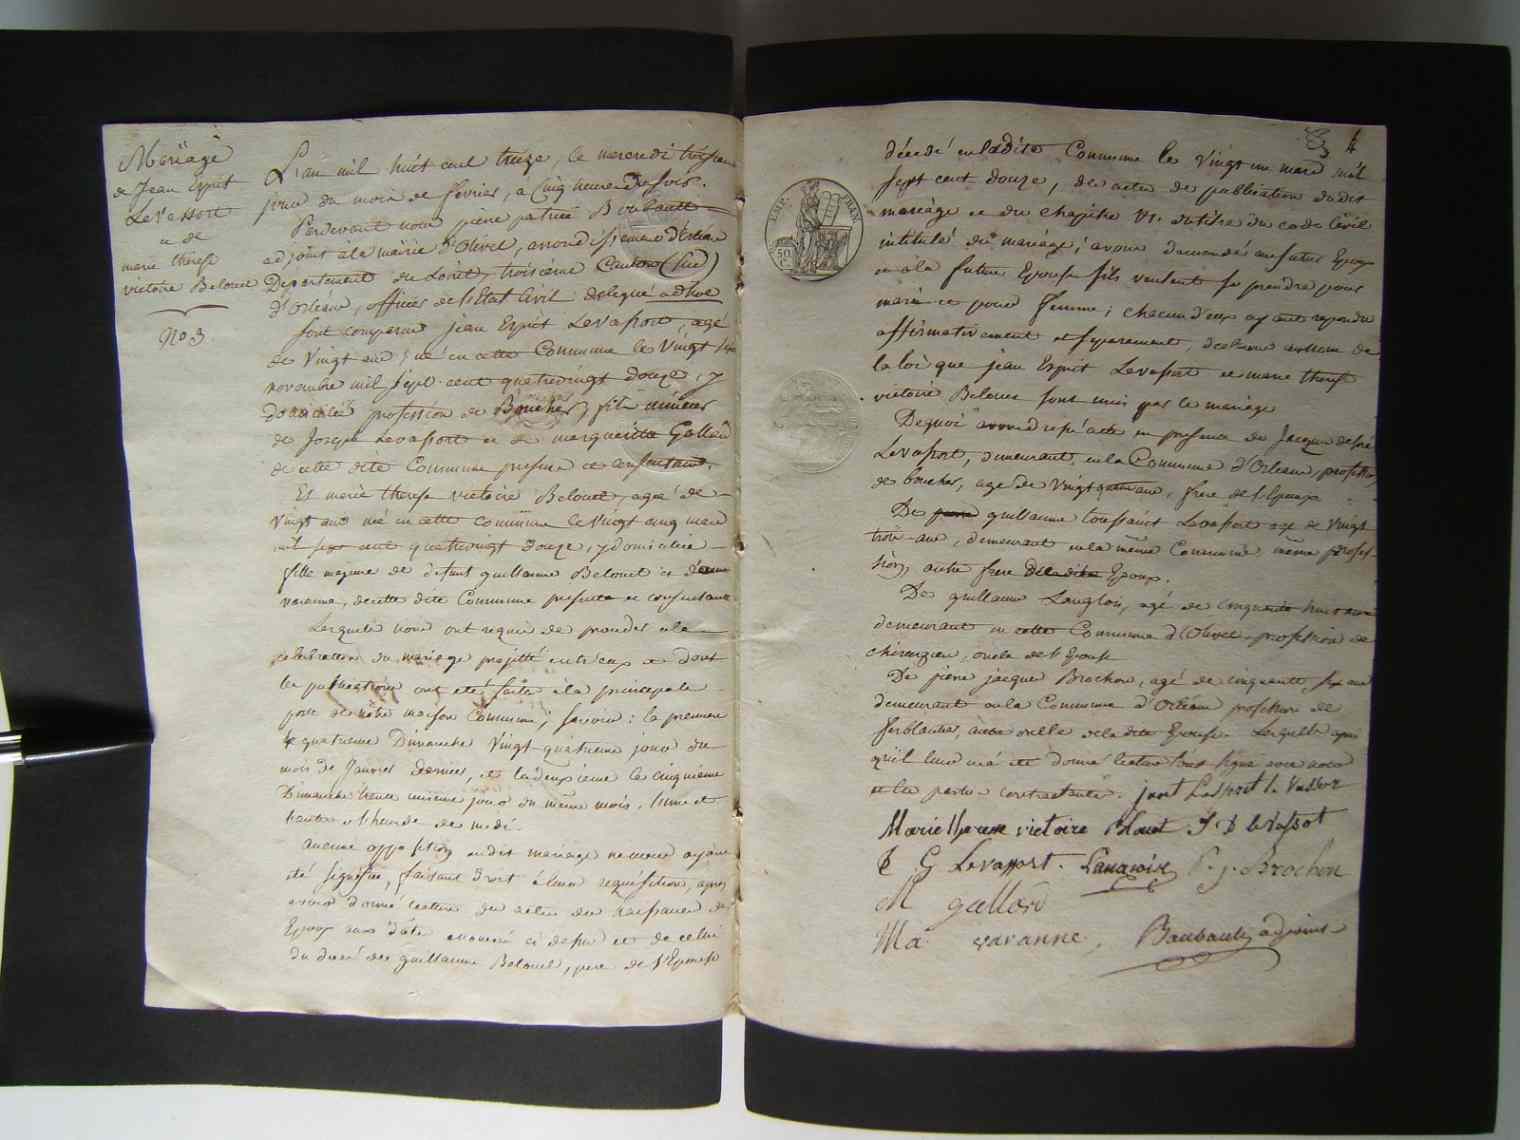 Mariage
de Jean Esprit
Levassort
et de
marie therese
victoire Belouet
No 3
L'an mil huit cent treize, le mercredi troisieme
jour du mois de fevrier, a cinq heures du soir.
Pardevant nous pierre patrice Boubault
adjoint à la mairie d'Olivet, arrondissement d'Orléans
Departement du Loiret, troisieme Canton (Sud)
d'Orléans, officier de l'Etat Civil délégué ad hoc
sont comparus jean Esprit Levassort, agé
de Vingt ans, né en cette Commune le Vingt
novembre mil sept cent quatrevingt douze, y
domicilié profession de Boucher, fils mineur
de Joseph Levassort et de margueritte Gallard
de cette dite Commune presens et consentans.
Et marie therese victoire Belouet, agée de
vingt ans né en cette commune le vingt cinq mars
mil sept cent quatrevingt douze, y domiciliée
fille majeure de defunt guillaume Belouet et d'anne
varanne, de cette dite Commune presente et consentante
Lesquels nous ont requis de proceder à la
célébration du mariage projetté entr'eux et dont
les publications ont été faites à la principale
porte de nôtre maison Commune, savoir: la premiere
le quatrieme Dimanche Vingt-quatrieme jour du
mois de Janvier dernier, et la deuxieme le cinquieme
Dimanche trente unieme jour du même mois, l'une et
l'autre à l'heure de midi.
aucune opposition audit mariage ne nous ayant
été signifiée, faisant droit à leur requisition, après
avoir donné lecture des actes de naissance des
Epoux aux dates enoncées ci dessus et de celui
du decés de guillaume Belouet, pere de l'Epouse
4
décédé en ladite Commune le vingt un mars mil
sept cent douze, des actes de publication dudit
mariage et du chapitre VI. du titre du code Civil
intitulé du mariage; avons demandé au futur Epoux
et à la future Epouse s'ils veulent se prendre pour
mari et pour femme; chacun d'eux ayant repondu
affirmativement et separement, declarons au nom de
la loi que jean Esprit Levassort et marie therese
victoire Belouet sont unis par le mariage
De quoi avons dressé acte en presence de Jacques desiré
Levassort, demeurant en la Commune d'Orléans, profession
de boucher, agé de Vingt quatre ans, frere de l'Epoux
De guillaume toussaint Levassort agé de vingt
trois ans, demeurant en la même Commune même profes-
sion, autre frere dudit Epoux.
De guillaume Langlois, agé de cinquante huit ans
demeurant en cette Commune d'Olivet profession de
chirurgien, oncle de l'Epouse
De pierre jacques Brochon, agé de cinquante six ans
demeurant en la Commune d'Orléans profession de
ferblantier, autre oncle de la dite Epouse. Lesquels après
qu'il leur en a été donné lecture l'ont signé avec nous
et les parties contractantes.
Marie therese victoire Blouet J. D levassot
G Levassort. Langlois P. j. Brochon
M gallard
Ma varanne, Boubault adjoint
EMP. FRAN.
50
C.